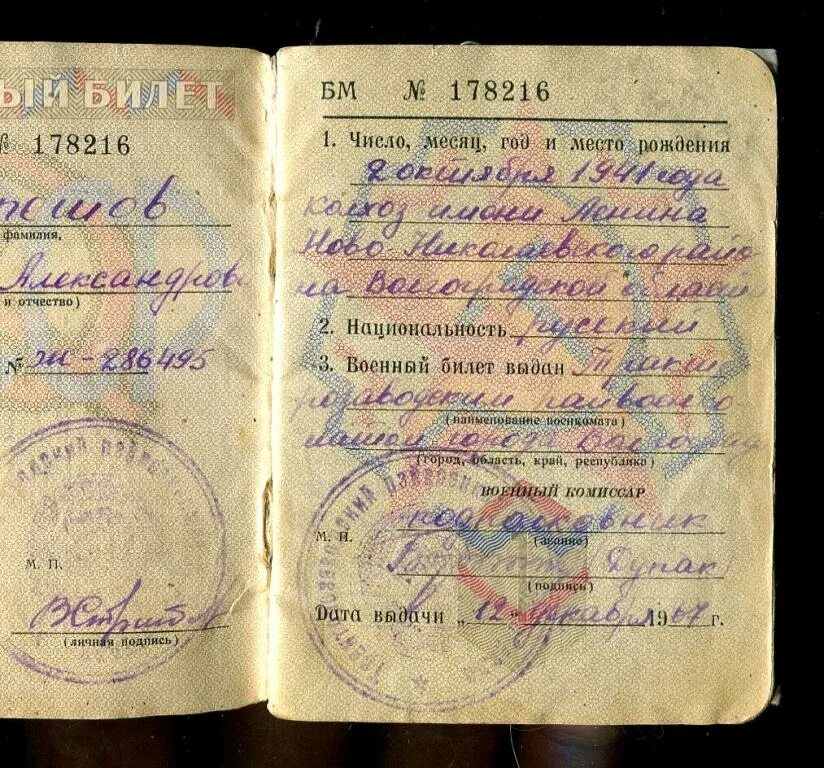 ЫЙ БИЛЕТ
№ 178216
фамилия,
Александров
и отчество)
№ 286495
М. П.
(личная подпись)
БМ № 178216
1. Число, месяц, год и место рождения
2 октября 1941 года
колхоз имени Ленина
Ново Николаевского райо
на Волгоградской области
2. Национальность русский
3. Военный билет выдан Тракто
розаводским райвоенко
(наименование военкомата)
матом города Волгограда
(город, область, край, республика)
ВОЕННЫЙ КОМИССАР
подполковник
М. П.
(звание)
Дупак
(подпись)
Дата выдачи „12" декабря 1967 г.